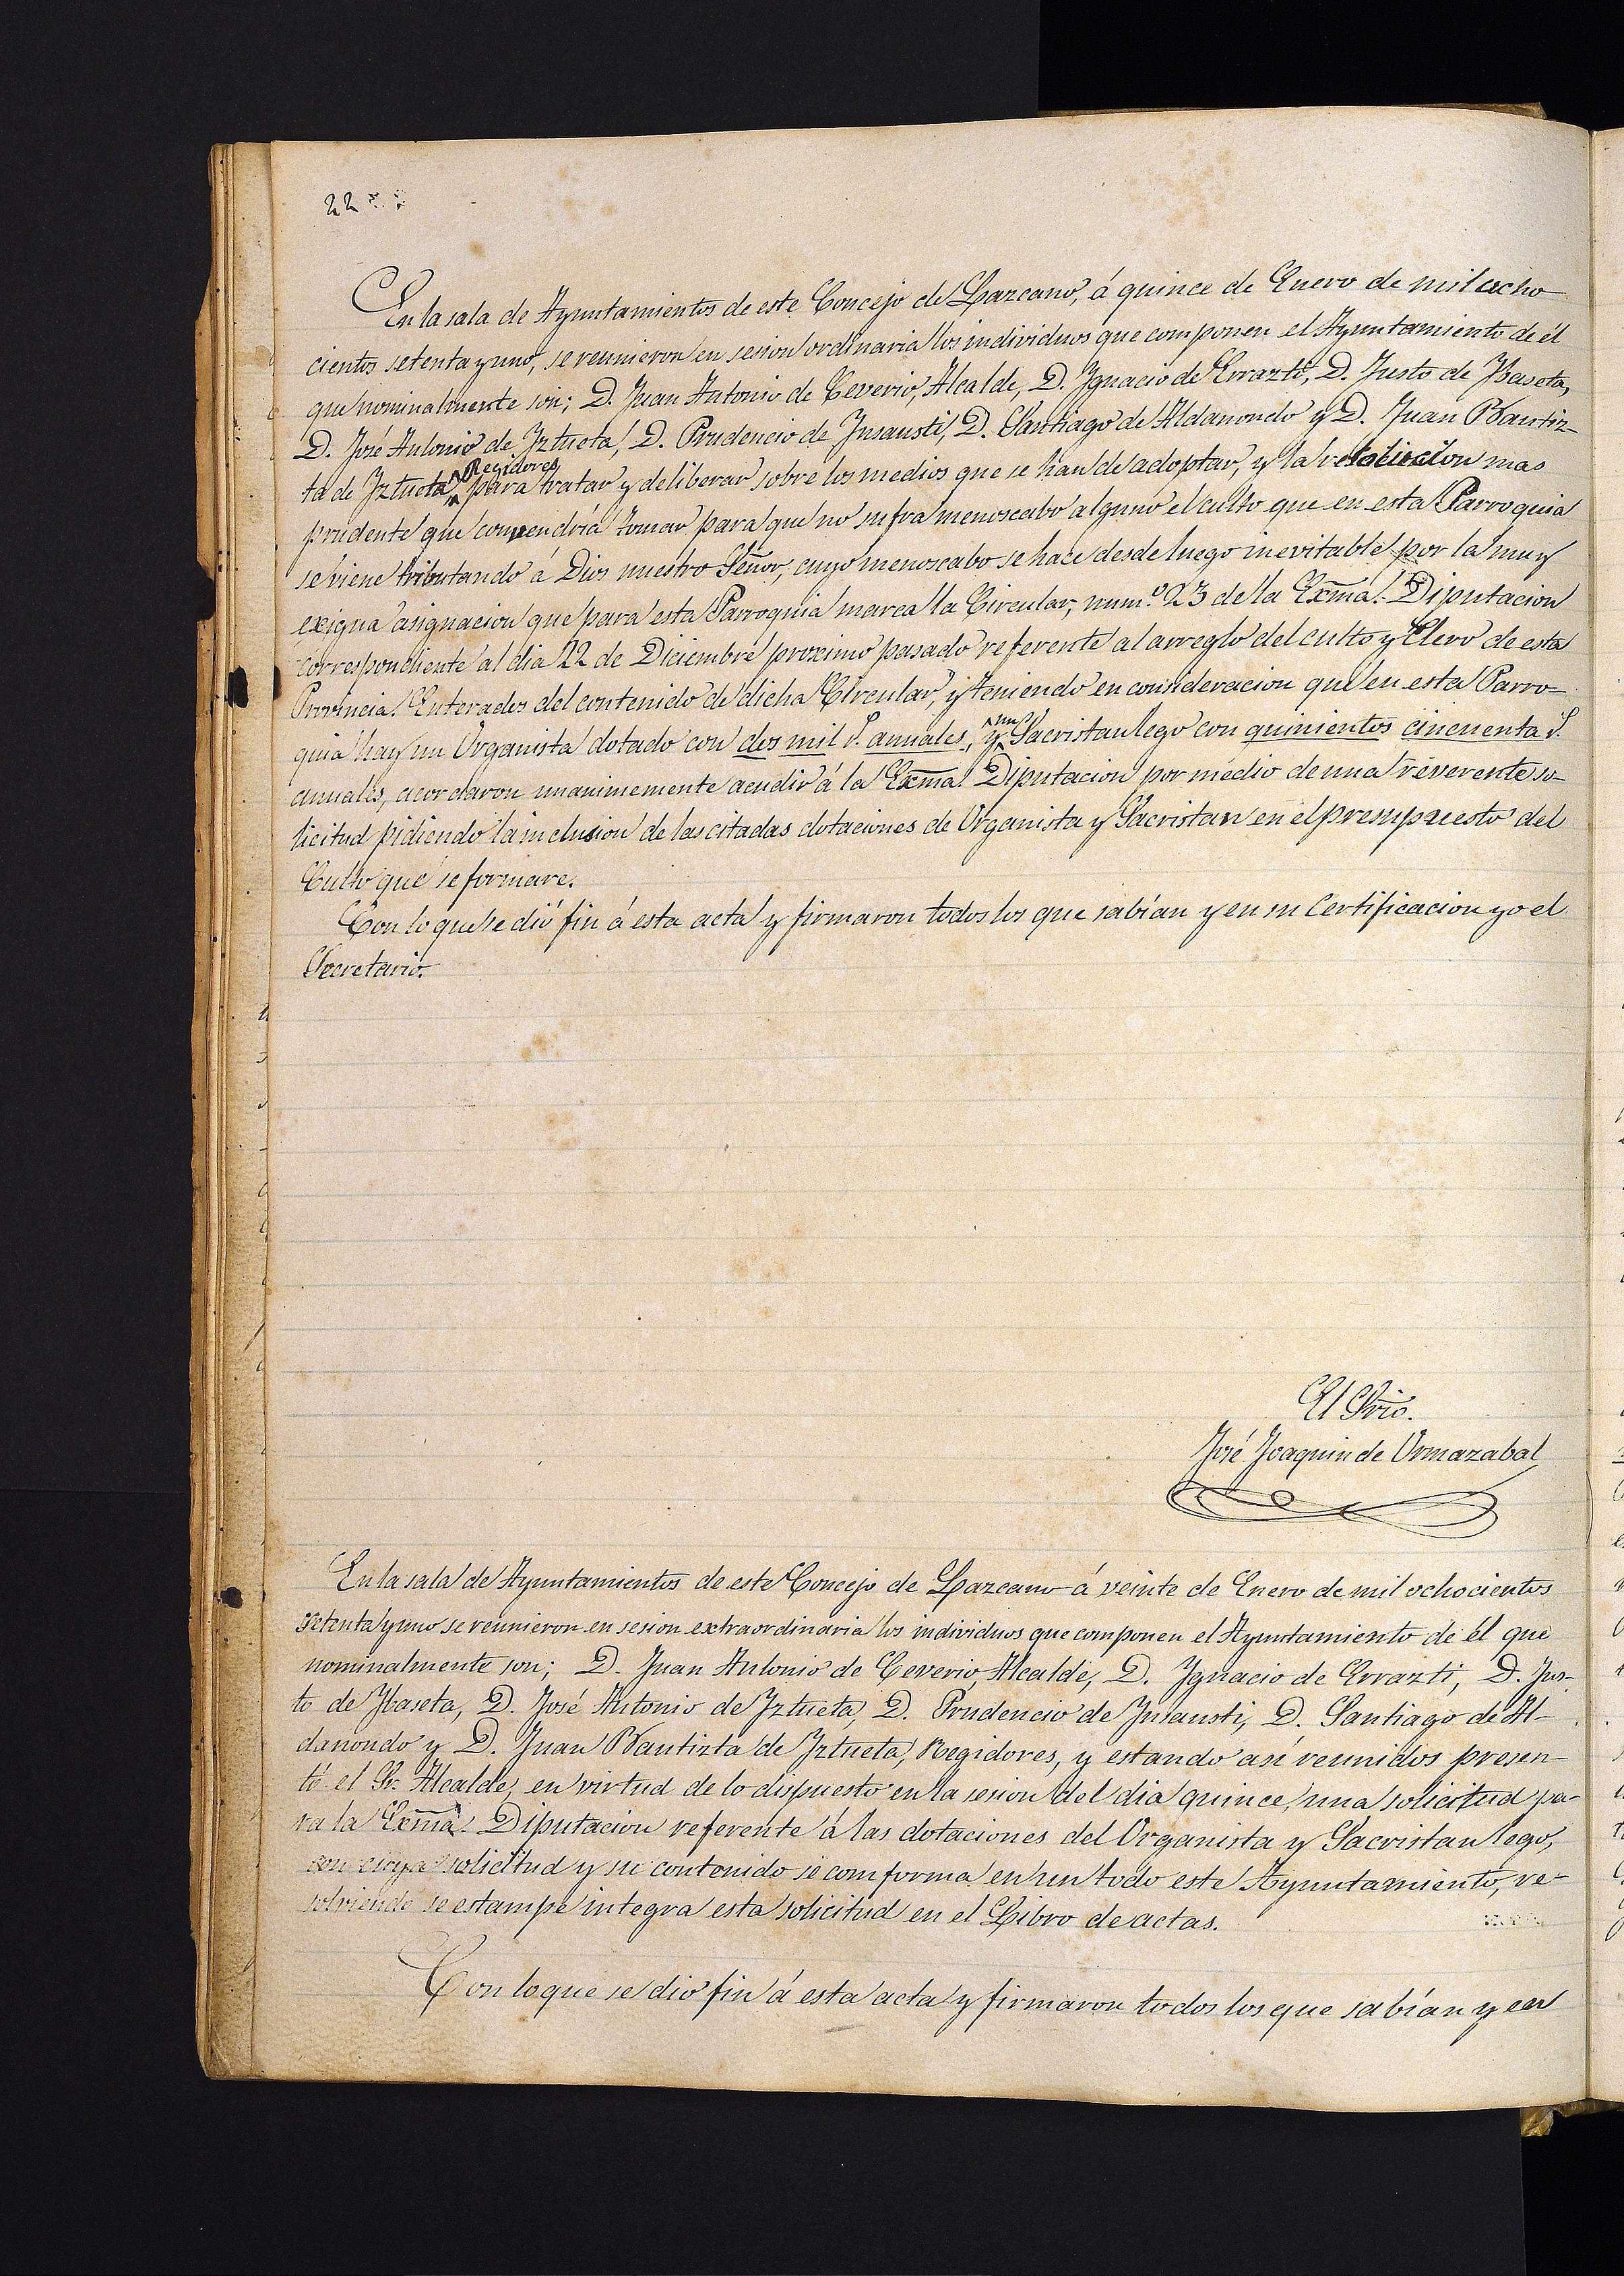 22
En la sala de Ayuntamientos de este Concejo de Lazcano, á quince de Enero de mil ocho
cientos setenta y uno, se reunieron en sesion ordinaria los individuos que componen el Ayuntamiento de él
que nominalmente son; D. Juan Antonio de Ceverio, Alcalde, D. Ygnacio de Errazti, D. Justo de Ybaseta,
D. José Antonio de Yztueta, D. Prudencio de Ynsausti, D. Santiago de Aldanondo y D. Juan Bautiz-
ta de Yztueta, Regidores, para tratar y deliberar sobre los medios que se han de adoptar, y la resolucion mas
prudente que convendría tomar para que no sufra menoscabo alguno el culto que en esta Parroquia
se viene tributando á Dios nuestro Señor, cuyo menoscabo se hace desde luego inevitable por la muy
exigua asignacion que para esta Parroquia marca la Circular, num.º 23 de la Exma. Diputacion
correspondiente al dia 22 de Diciembre proximo pasado referente al arreglo del culto y Clero de esta
Provincia. Enterados del contenido de dicha Circular, y teniendo en consideracion que en esta Parro-
quia hay un Organista dotado con dos mil r. anuales, y un Sacristan lego con quinientos cincuenta r.
anuales, acordaron unanimemente acudir á la Exma. Diputacion por medio de una reverente so-
licitud pidiendo la inclusion de las citadas dotaciones de Organista y Sacristan en el presupuesto del
Culto que se formare.
Con lo que se dió fin á esta acta y firmaron todos los que sabían y en su certificacion yo el
Secretario.
El Srio.
José Joaquin de Ormazabal
En la sala de Ayuntamientos de este Concejo de Lazcano á veinte de Enero de mil ochocientos
setenta y uno se reunieron en sesion extraordinaria los individuos que componen el Ayuntamiento de él que
nominalmente son; D. Juan Antonio de Ceverio, Alcalde, D. Ygnacio de Errazti, D. Jus-
to de Ybaseta, D. José Antonio de Yztueta, D. Prudencio de Ynsausti, D. Santiago de Al-
danondo y D. Juan Bautizta de Yztueta, Regidores, y estando asi reunidos presen-
tó el Sr. Alcalde, en virtud de lo dispuesto en la sesion del dia quince, una solicitud pa-
ra la Exma. Diputacion referente á las dotaciones del Organista y Sacristan lego,
con cuya solicitud y su contenido se comforma en un todo este Ayuntamiento, re-
solviendo se estampe integra esta solicitud en el Libro de actas.
Con lo que se dió fin á esta acta y firmaron todos los que sabían y en